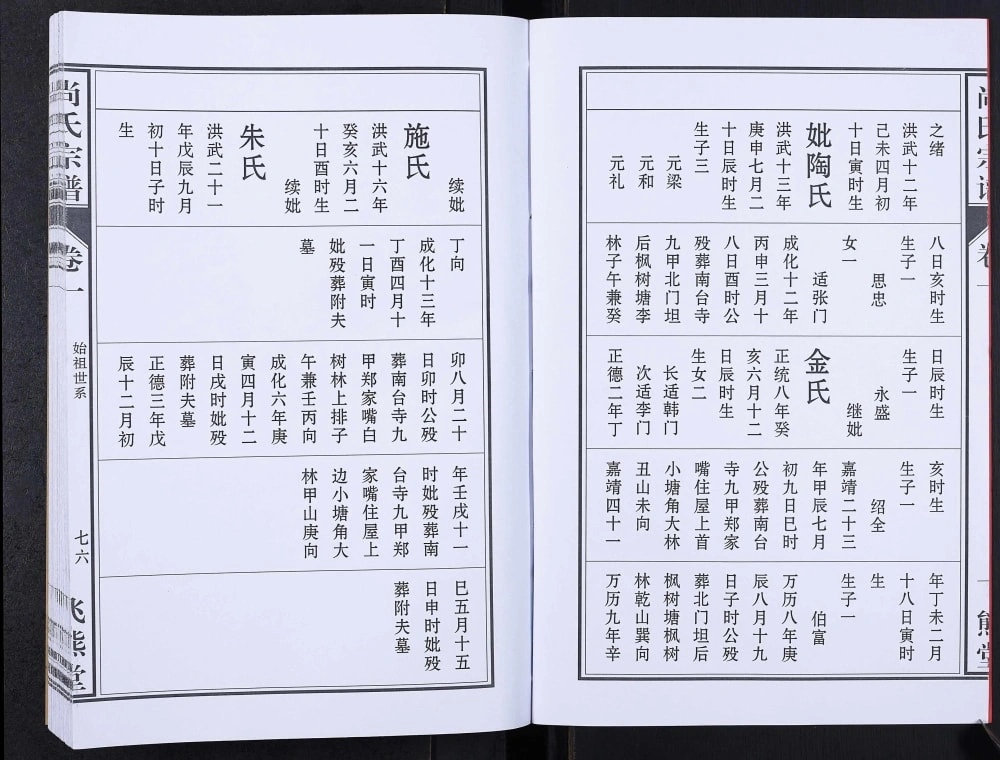 之绪
洪武十二年
己未四月初
十日寅时生
妣陶氏
洪武十三年
庚申七月二
十日辰时生
生子三
元梁
元和
元礼
八日亥时生
生子一
思忠
女一
适张门
成化十二年
丙申三月十
八日酉时公
殁葬南台寺
九甲北门坦
后枫树塘李
林子午兼癸
日辰时生
生子一
永盛
继妣
金氏
正统八年癸
亥六月十二
日辰时生
生女二
长适韩门
次适李门
正德二年丁
亥时生
生子一
绍全
嘉靖二十三
年甲辰七月
初九日巳时
公殁葬南台
寺九甲郑家
嘴住屋上首
小塘角大林
丑山未向
嘉靖四十一
年丁未二月
十八日寅时
生
生子一
伯富
万历八年庚
辰八月十九
日子时公殁
葬北门坦后
枫树塘枫树
林乾山巽向
万历九年辛
续妣
施氏
洪武十六年
癸亥六月二
十日酉时生
续妣
朱氏
洪武二十一
年戊辰九月
初十日子时
生
丁向
成化十三年
丁酉四月十
一日寅时
妣殁葬附夫
墓
卯八月二十
日卯时公殁
葬南台寺九
甲郑家嘴白
树林上排子
午兼壬丙向
成化六年庚
寅四月十二
日戌时妣殁
葬附夫墓
正德三年戊
辰十二月初
年壬戌十一
时妣殁葬南
台寺九甲郑
家嘴住屋上
边小塘角大
林甲山庚向
巳五月十五
日申时妣殁
葬附夫墓
尚氏宗谱
卷一
始祖世系
七六
飞熊堂